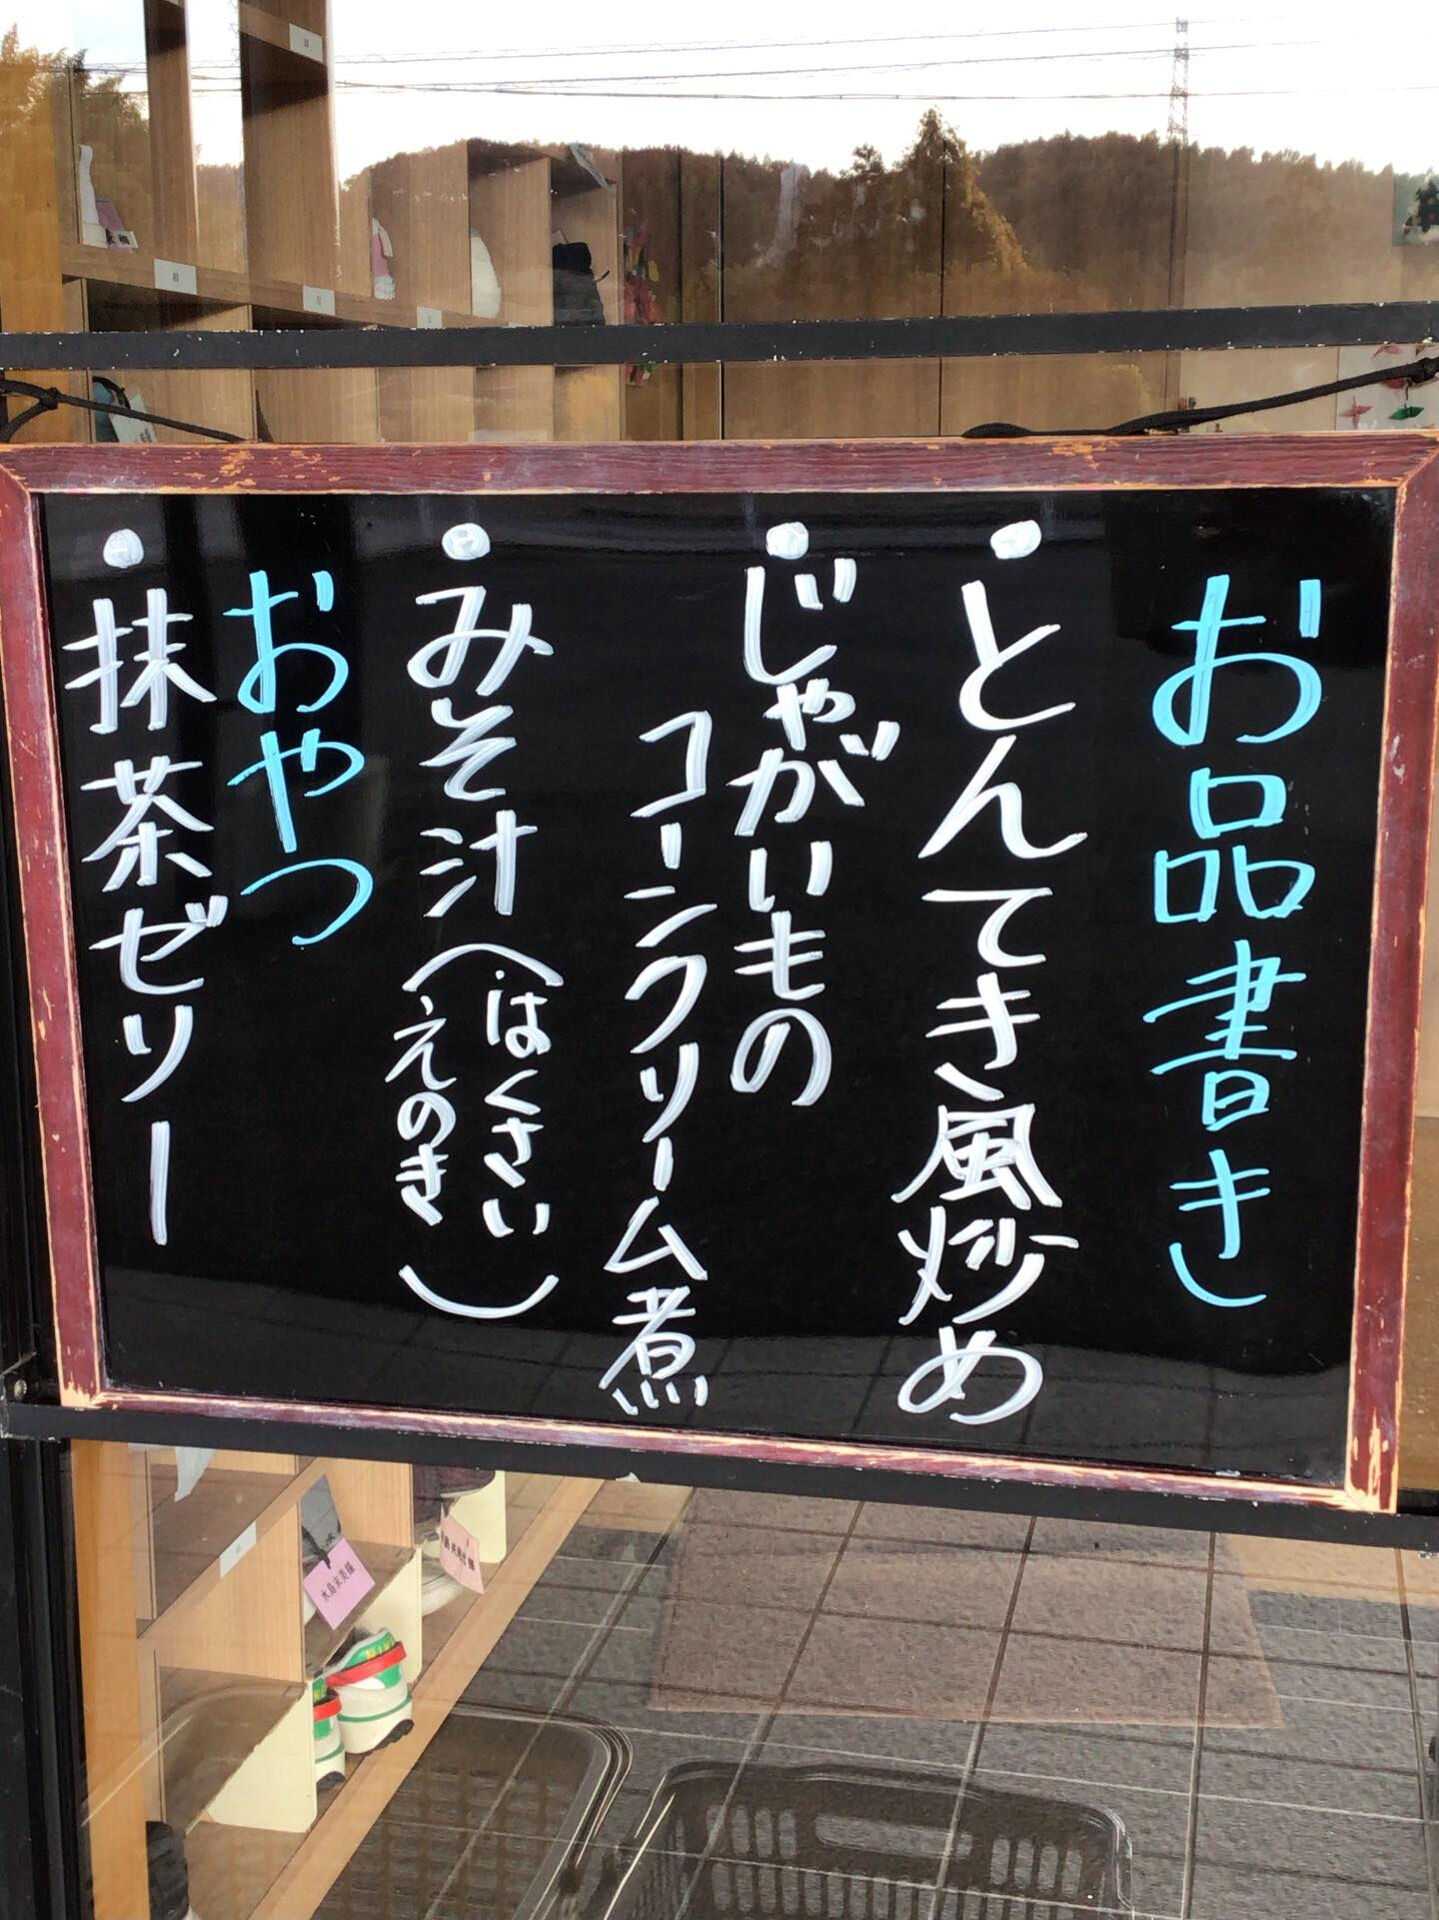 お品書き
・とんてき風炒め
・じゃがいもの
コーンクリーム煮
・みそ汁(はくさい
えのき)
おやつ
・抹茶ゼリー